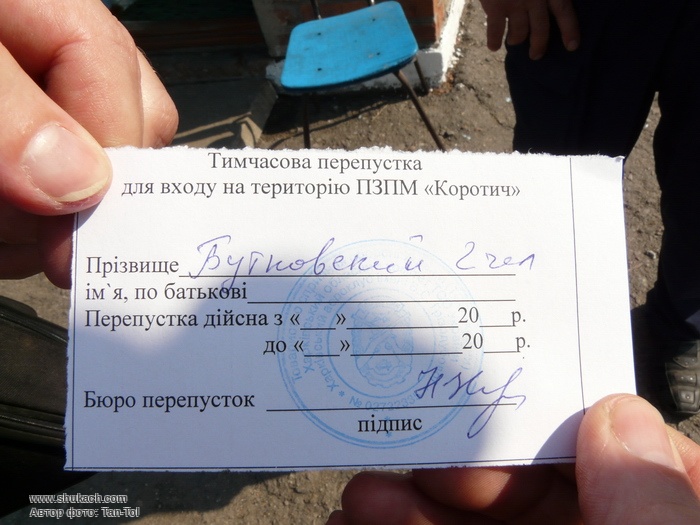 Тимчасова перепустка
для входу на територію ПЗПМ «Коротич»
Прізвище Бутковский 2 чел
ім`я, по батькові
Перепустка дійсна з «___»__________20___р.
до «___»__________20___р.
Бюро перепусток
підпис
www.shukach.com
Автор фото: Tan-Tol